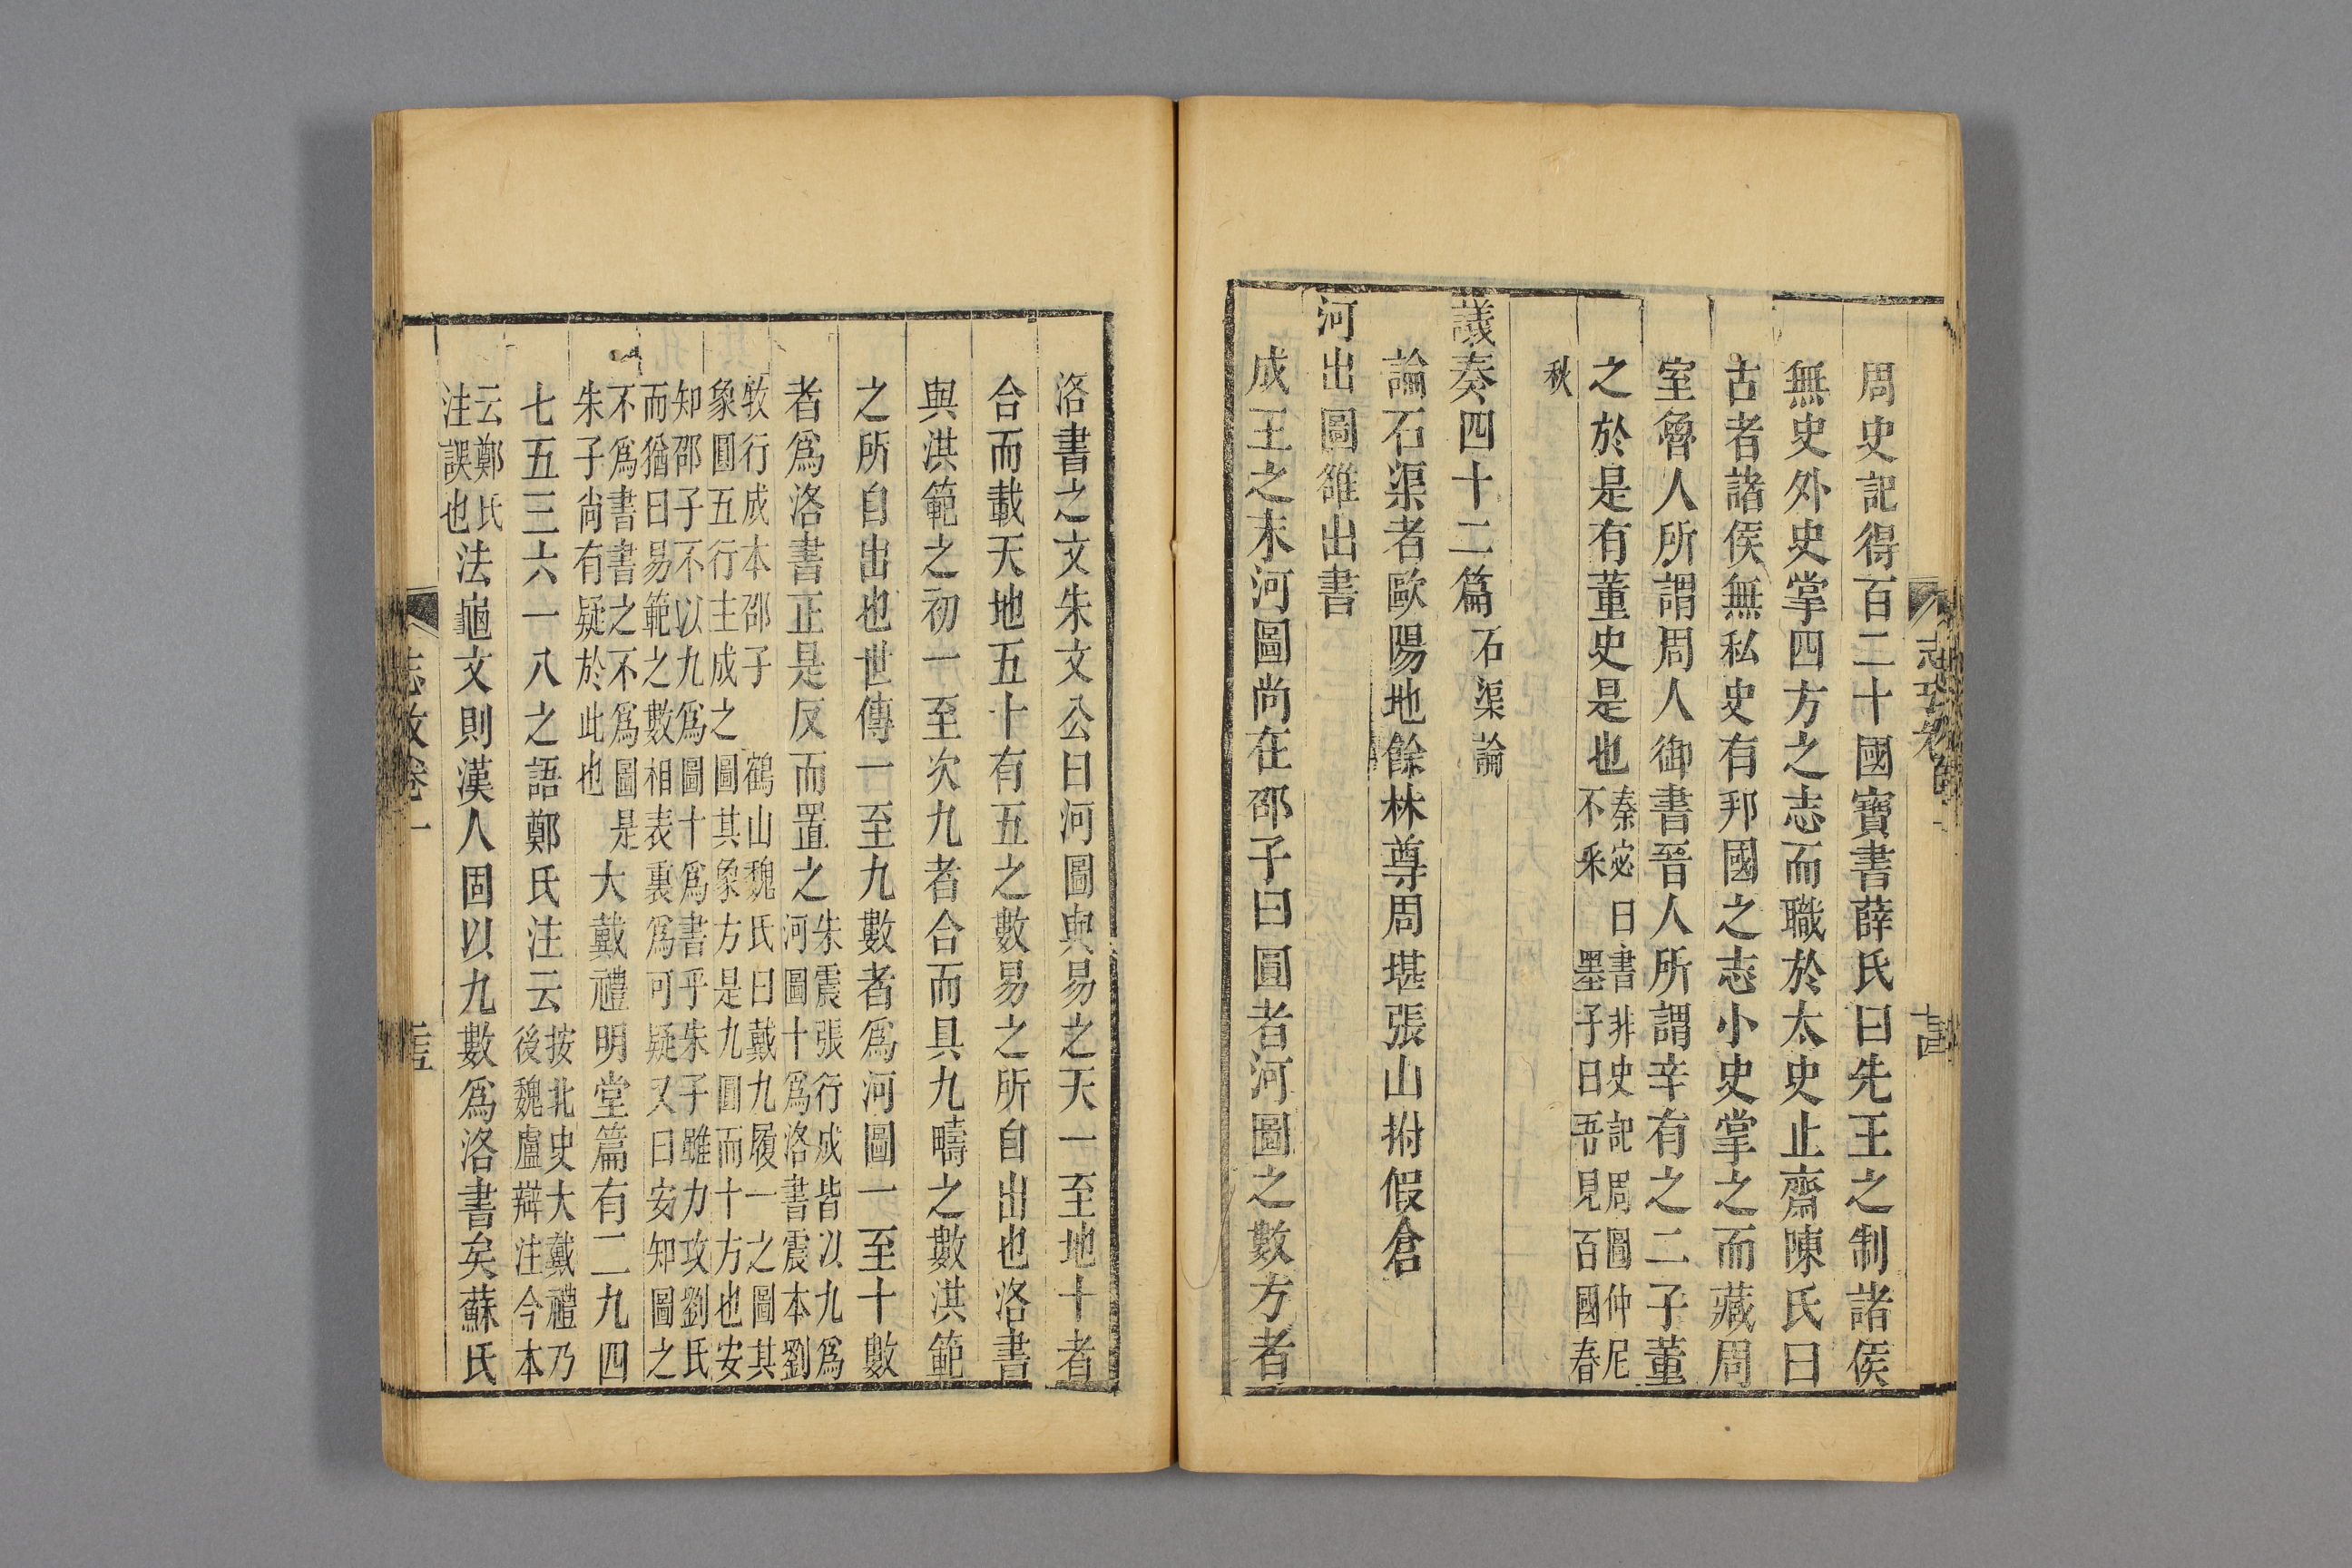 周史記得百二十國寶書薛氏曰先王之制諸侯
無史外史掌四方之志而職於太史止齋陳氏曰
古者諸侯無私史有邦國之志小史掌之而藏周
室魯人所謂周人御書晉人所謂辛有之二子董
之於是有董史是也
秦宓曰書非史記周圖仲尼
不采 墨子曰吾見百國春
秋
議奏四十二篇
石渠論
論石渠者歐陽地餘林尊周堪張山拊假倉
河出圖雒出書
成王之末河圖尚在邵子曰圓者河圖之數方者
洛書之文朱文公曰河圖與易之天一至地十者
合而載天地五十有五之數易之所自出也洛書
與洪範之初一至次九者合而具九疇之數洪範
之所自出也世傳一至九數者為河圖一至十數
者為洛書正是反而置之
朱震張行成皆以九為
河圖十為洛書震本劉
牧行成本邵子 鶴山魏氏曰戴九履一之圖其
象圓五行主成之圖其象方是九圓而十方也安
知邵子不以九為圖十為書乎朱子雖力攻劉氏
而猶曰易範之數相表裏為可疑又曰安知圖之
不為書書之不為圖是
朱子尚有疑於此也
大戴禮明堂篇有二九四
七五三六一八之語鄭氏注云
按北史大戴禮乃
後魏盧辯注今本
云鄭氏
注誤也
法龜文則漢人固以九數為洛書矣蘇氏
志攷卷一